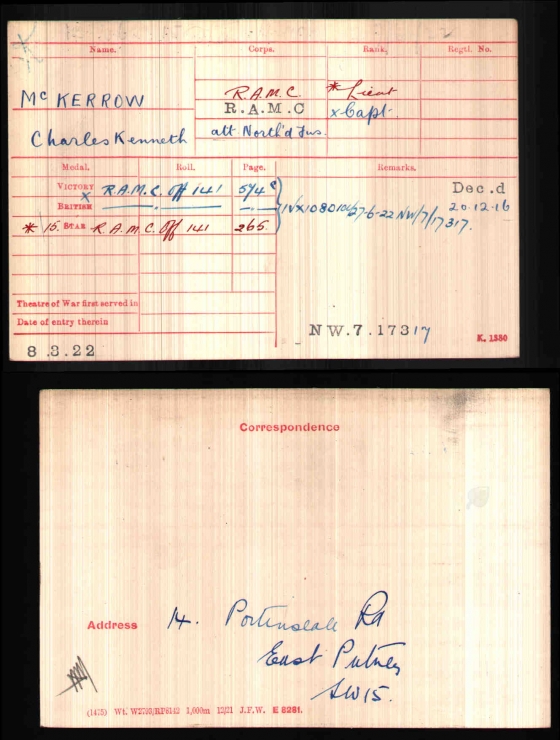 Name. Corps. Rank. Regtl. No.
Mc KERROW R.A.M.C * Lieut
R.A.M.C x Capt.
Charles Kenneth att North'd Fus.
Medal. Roll. Page. Remarks.
VICTORY R.A.M.C. Off 141 5/4 c Dec.d
X
BRITISH —„— —„— 27-6-22 NW/7/17317. 20.12.16
* 15. STAR R.A.M.C. Off 141 265
Theatre of War first served in
Date of entry therein
NW.7.17317 K. 1380
8.3.22
Correspondence
Address 14. Portinscale Rd
East Putney
SW15.
(1435) Wt. 1,000m 12/21 J.F.W. E 8281.